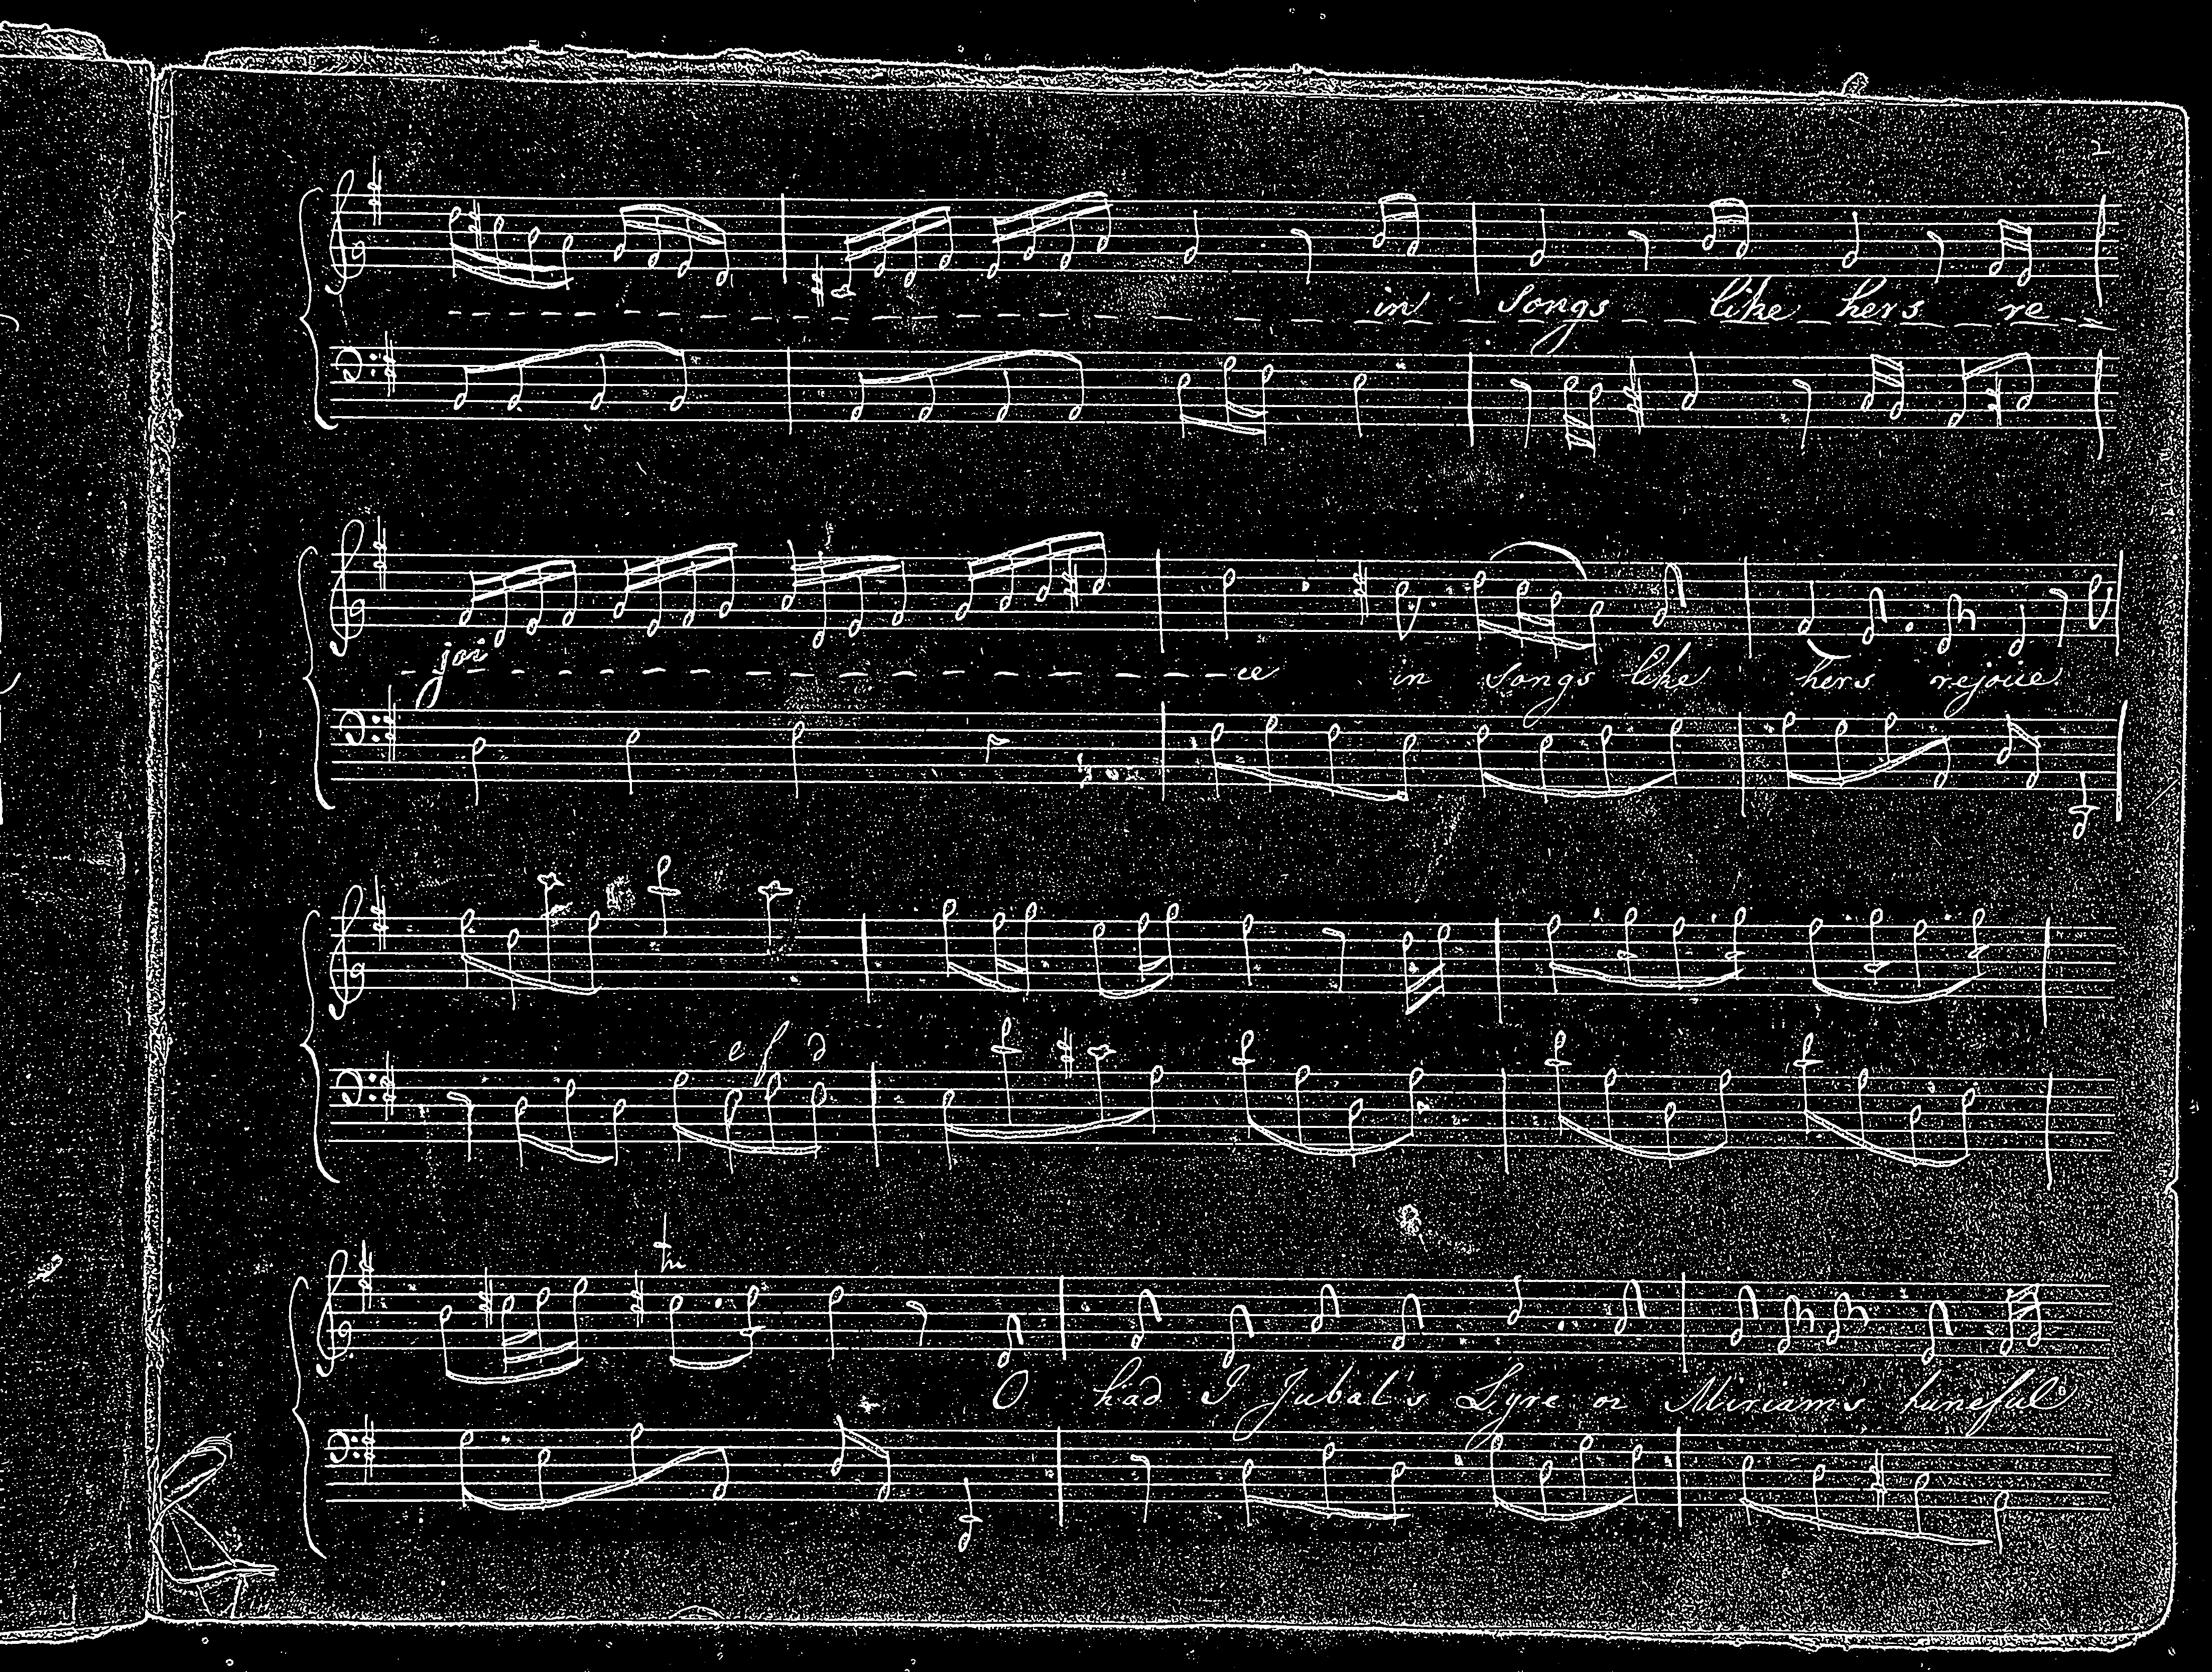 2
in songs like hers re
joi ce in songs like hers rejoice
e f d
tr
O had I Jubal's Lyre or Miriam's tuneful